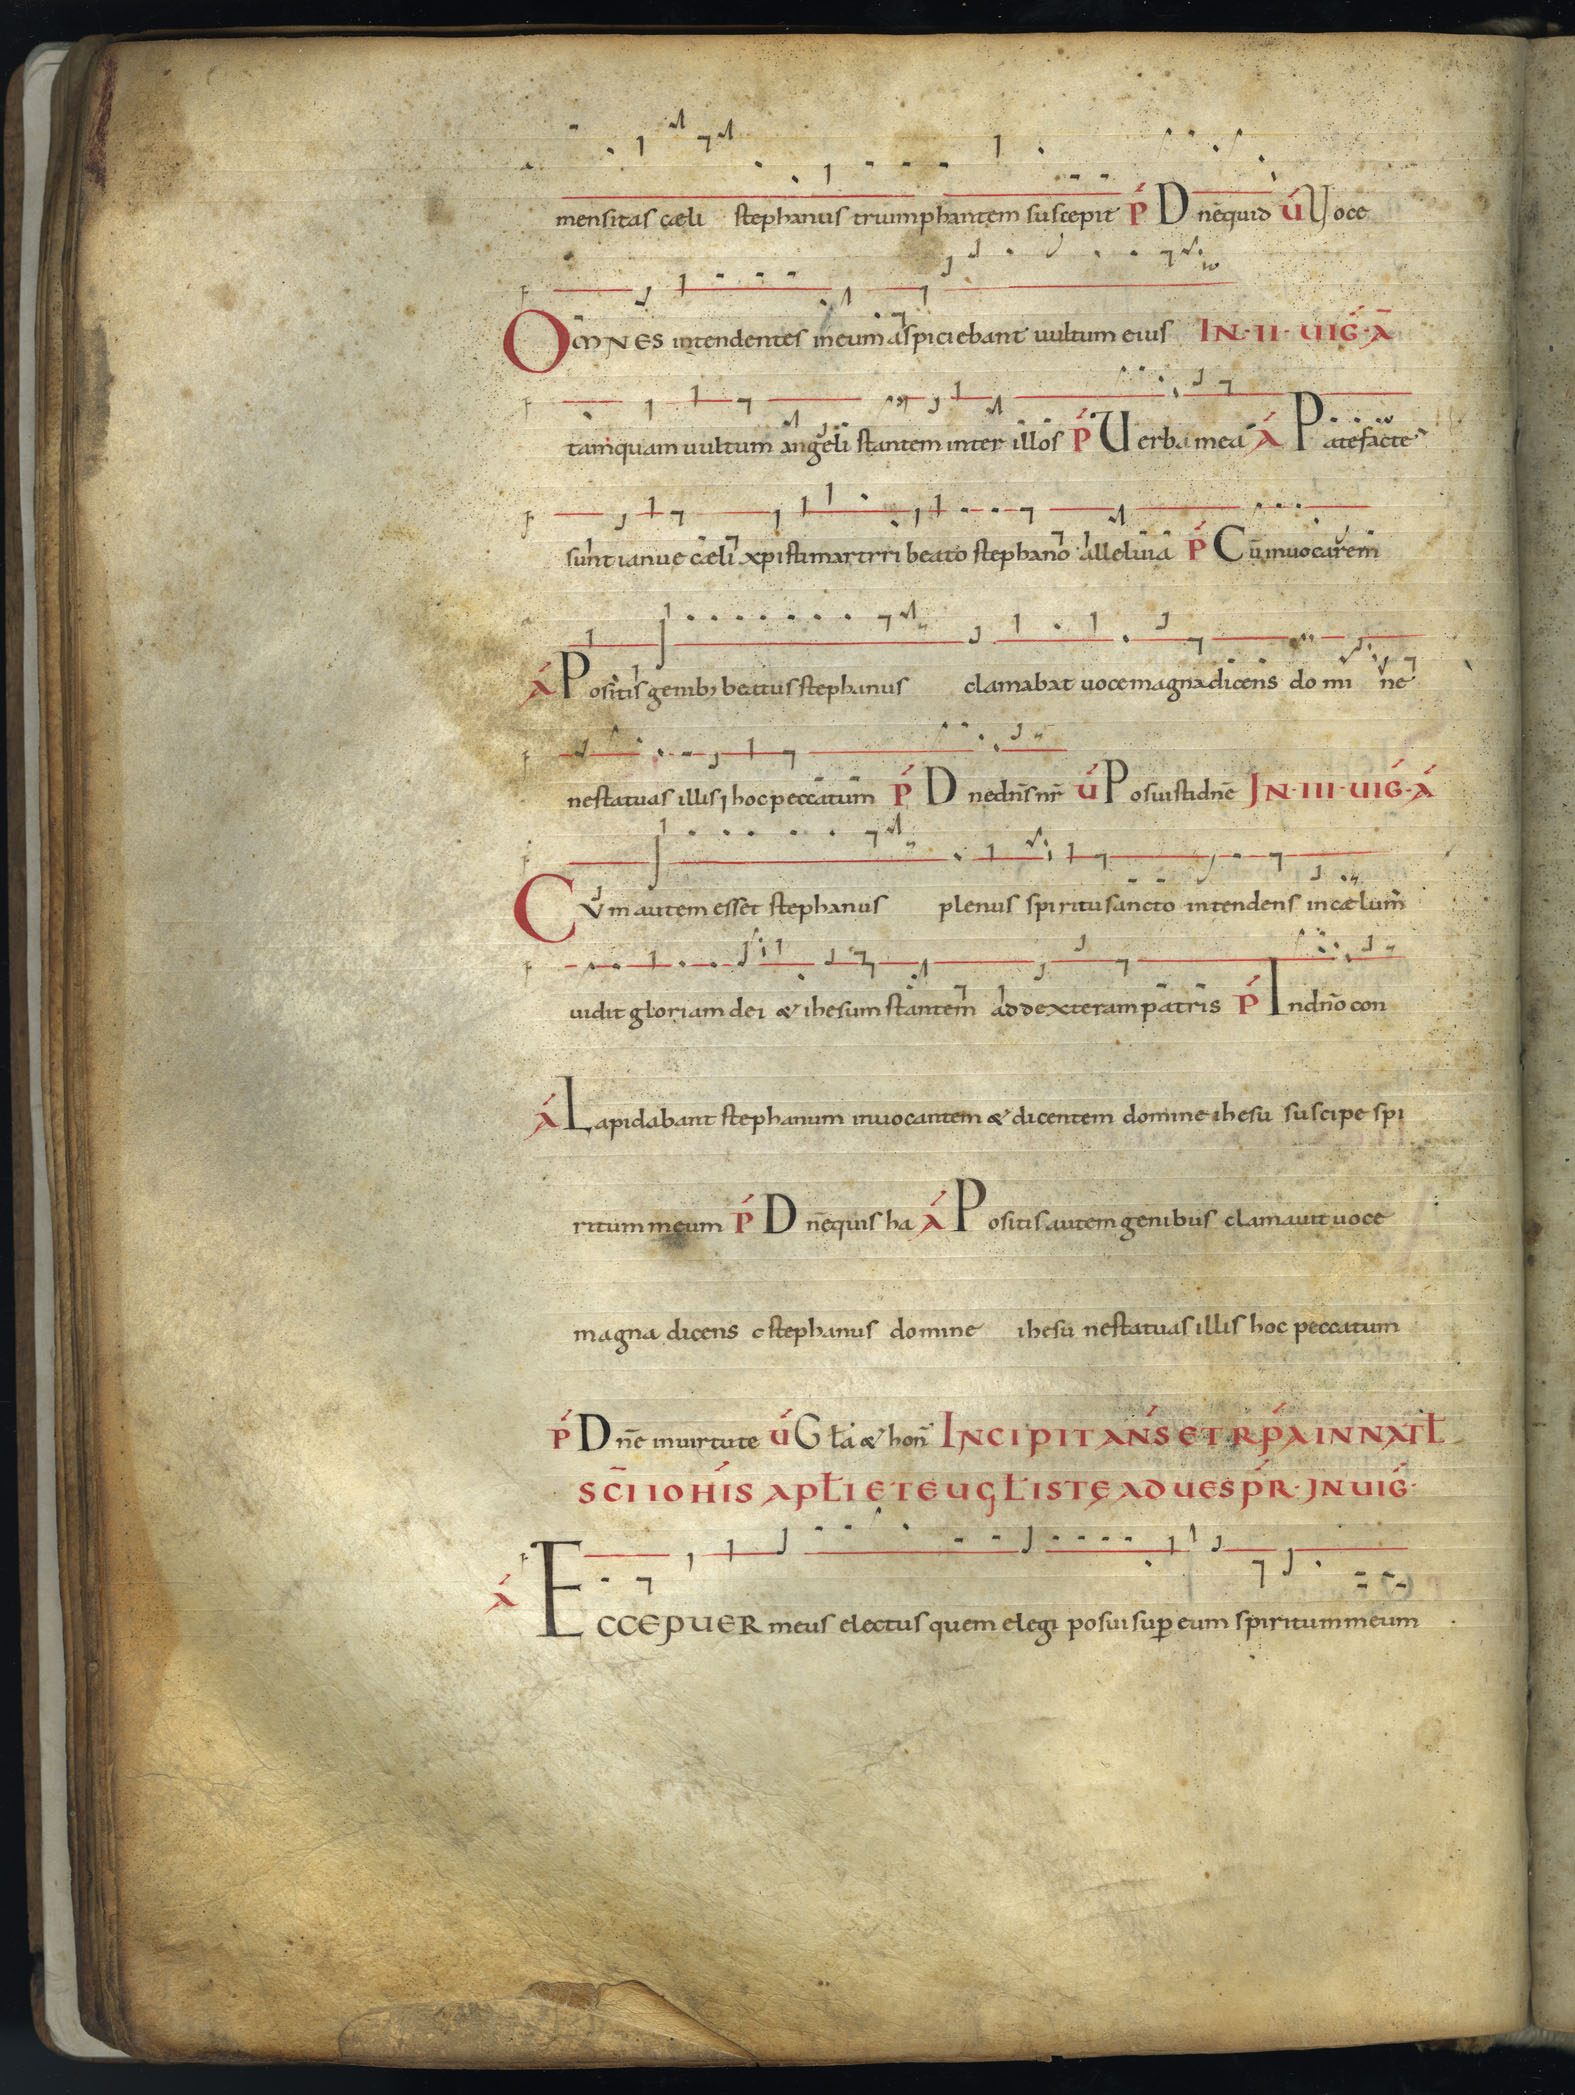 mensitas cæli stephanus triumphantem suscepit P̄ Dnēquid Ū Voce
Om̄NES intendentes ineum aspiciebant uultum eius IN·II·UIḠ·Ā
tamquam uultum angeli stantem inter illos P̄ Uerba mea Ā Patefacte
sunt ianue cæli xpisti martyri beato stephano alleluia P̄ Cū inuocarem
Ā Positis genib; beatus stephanus clamabat uoce magna dicens domi ne
ne statuas illis hoc peccatum P̄ Dnednēnr̄ Ū Posuistidnē IN·III·UIḠ·Ā
Cum autem esset stephanus plenus spiritu sancto intendens incælum
uidit gloriam dei & ihesum stantem addexteram patris P̄ Indnō con
Ā Lapidabant stephanum inuocantem & dicentem domine ihesu suscipe spi
ritum meum P̄ Dnēquis ha Ā Positis autem genibus clamauit uoce
magna dicens stephanus domine ihesu ne statuas illis hoc peccatum
P̄ Dnē inuirtute Ū Gła & hon̄ INCIPIT AN̄S ET RP̄A IN NATŁ
SC̄I IOHĪS APŁI ET EUGŁISTĘ AD UESPR̄· IN UIḠ·
Ā ECCEPUER meus electus quem elegi posui suꝑ eum spiritum meum